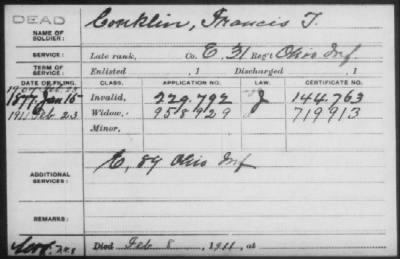 DEAD
NAME OF SOLDIER: Conklin, Francis T.
SERVICE: Late rank, Co. E, 31 Reg't Ohio Inf.
TERM OF SERVICE: Enlisted , 1 Discharged , 1
DATE OF FILING. CLASS. APPLICATION NO. LAW. CERTIFICATE NO.
1877 Jan 15 Invalid, 229.792 J 144.763
1911 Feb 23 Widow, 958929 719913
Minor,
ADDITIONAL SERVICES: E, 89 Ohio Inf
REMARKS:
Died Feb 8, 1911, at